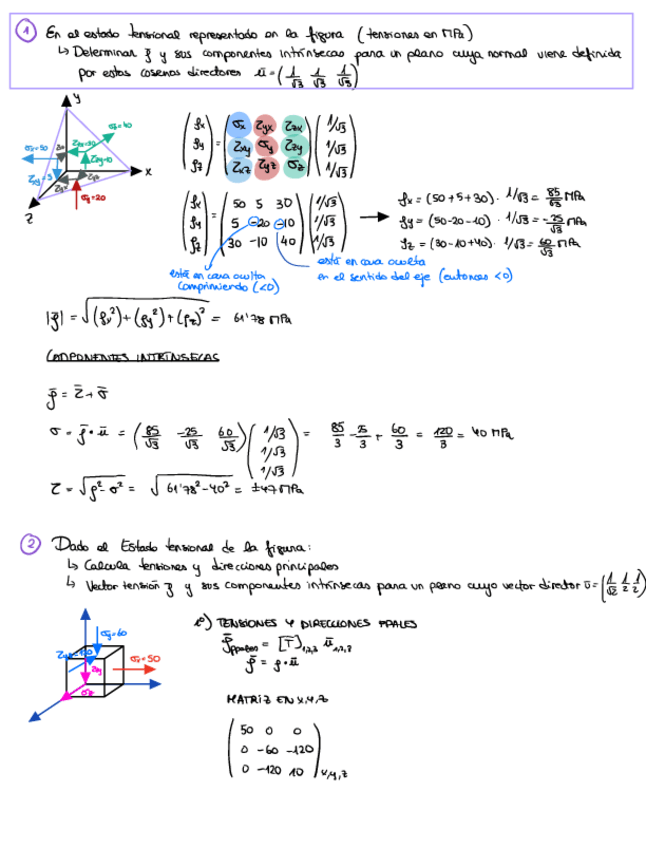 ① En el estado tensional representado en la figura (tensiones en MPa)
↳ Determinar ρ̄ y sus componentes intrínsecas para un plano cuya normal viene definida
por estos cosenos directores ū = (1/√3 1/√3 1/√3)
y
x
z
σx=50
σy=20
(ρx ρy ρz) = (σx τyx τzx; τxy σy τzy; τxz τyz σz) (1/√3 1/√3 1/√3)
(ρx ρy ρz) = (50 5 30; 5 -20 -10; 30 -10 40) (1/√3 1/√3 1/√3) →
ρx = (50+5+30) · 1/√3 = 85/√3 MPa
ρy = (50-20-10) · 1/√3 = -25/√3 MPa
ρz = (30-10+40) · 1/√3 = 60/√3 MPa
está en cara oculta
comprimiendo (<0)
está en cara oculta
en el sentido del eje (entonces <0)
|ρ̄| = √((ρx²)+(ρy²)+(ρz)²) = 61'78 MPa
COMPONENTES INTRÍNSECAS
ρ̄ = τ̄ + σ̄
σ = ρ̄ · ū = (85/√3 -25/√3 60/√3) (1/√3 1/√3 1/√3) = 85/3 - 25/3 + 60/3 = 120/3 = 40 MPa
τ = √(ρ²-σ²) = √(61'78²-40²) = ±47 MPa
② Dado el Estado tensional de la figura:
↳ Calcula tensiones y direcciones principales
↳ Vector tensión ρ̄ y sus componentes intrínsecas para un plano cuyo vector director ū = (1/√2 1/2 1/2)
σy=60
σx=50
σz
1º) TENSIONES Y DIRECCIONES PPALES
[T]1,2,3 ū1,2,3
ρ̄ = ρ · ū
MATRIZ EN X,Y,Z
(50 0 0; 0 -60 -120; 0 -120 10)x,y,z